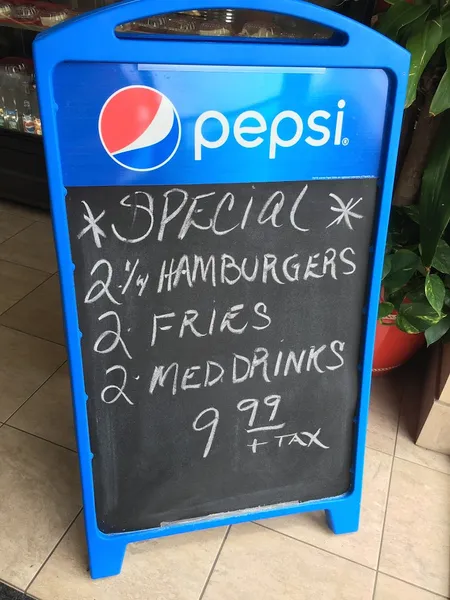 pepsi®
* SPECIAL *
2 1/4 HAMBURGERS
2 FRIES
2 MED. DRINKS
9 99
+ TAX